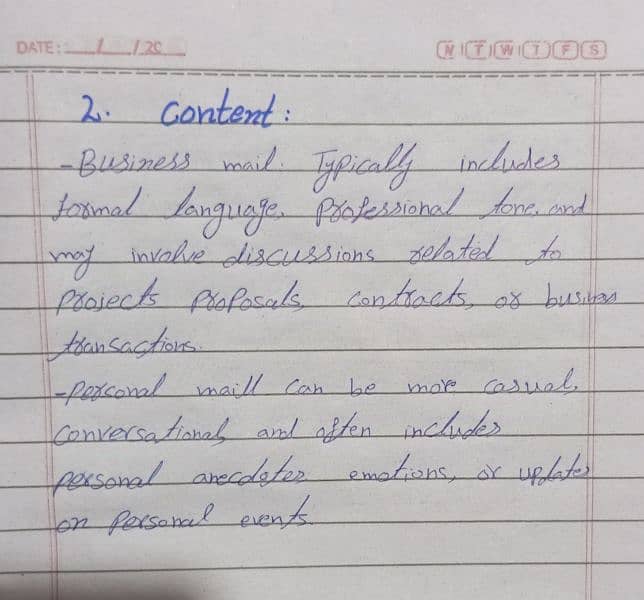 DATE: / / 20
M T W T F S
2. Content:
- Business mail. Typically includes
formal language, Professional tone, and
may involve discussions related to
Projects Proposals, Contracts, or business
transactions.
- Personal maill Can be more casual,
Conversational, and often includes
personal anecdotes emotions, or updates
on Personal events.